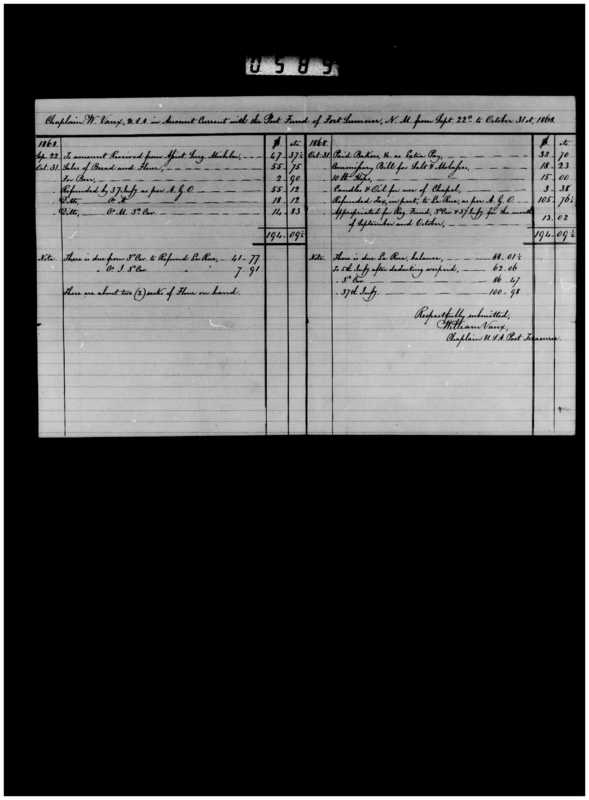 0589
Chaplain W. Vaux, U.S.A. in Account Current with the Post Fund of Fort Sumner, N. M. from Sept. 22d to October 31st, 1868.
1868. $ cts
Sep. 22 To amount Received from Asst Surg 47 37½
Oct. 31 Sales of Bread and Flour, 55 75
For Beer, 2 90
Refunded by 37 Infy as per A.G.O 55 12
Ditto, 18 12
Ditto, 3d Cav 14 83
194 09½
Note There is due from 3d Cav. to Refund 41 - 77
3d Cav 7 - 91
There are about two (2) sacks of Flour on hand.
1868 $ cts
Oct. 31 Paid Bakers, &c as Extra Pay, 38 70
Commissary Bill for Salt & Molasses, 18 23
10 lb Hops, 15 00
Candles & Oil for use of Chapel, 3 38
Refunded in part, to as per A.G.O 105 76½
Appropriated for Reg Fund, 3d Cav & 37 Infy for the month
of September and October, 13 02
194 09½
Note There is due balance, 68 . 01½
To 5th Infy after deducting 62 . 06
" 3d Cav 86 . 47
" 37th Infy 100 - 98
Respectfully submitted,
William Vaux,
Chaplain U.S.A. Post Treasurer.